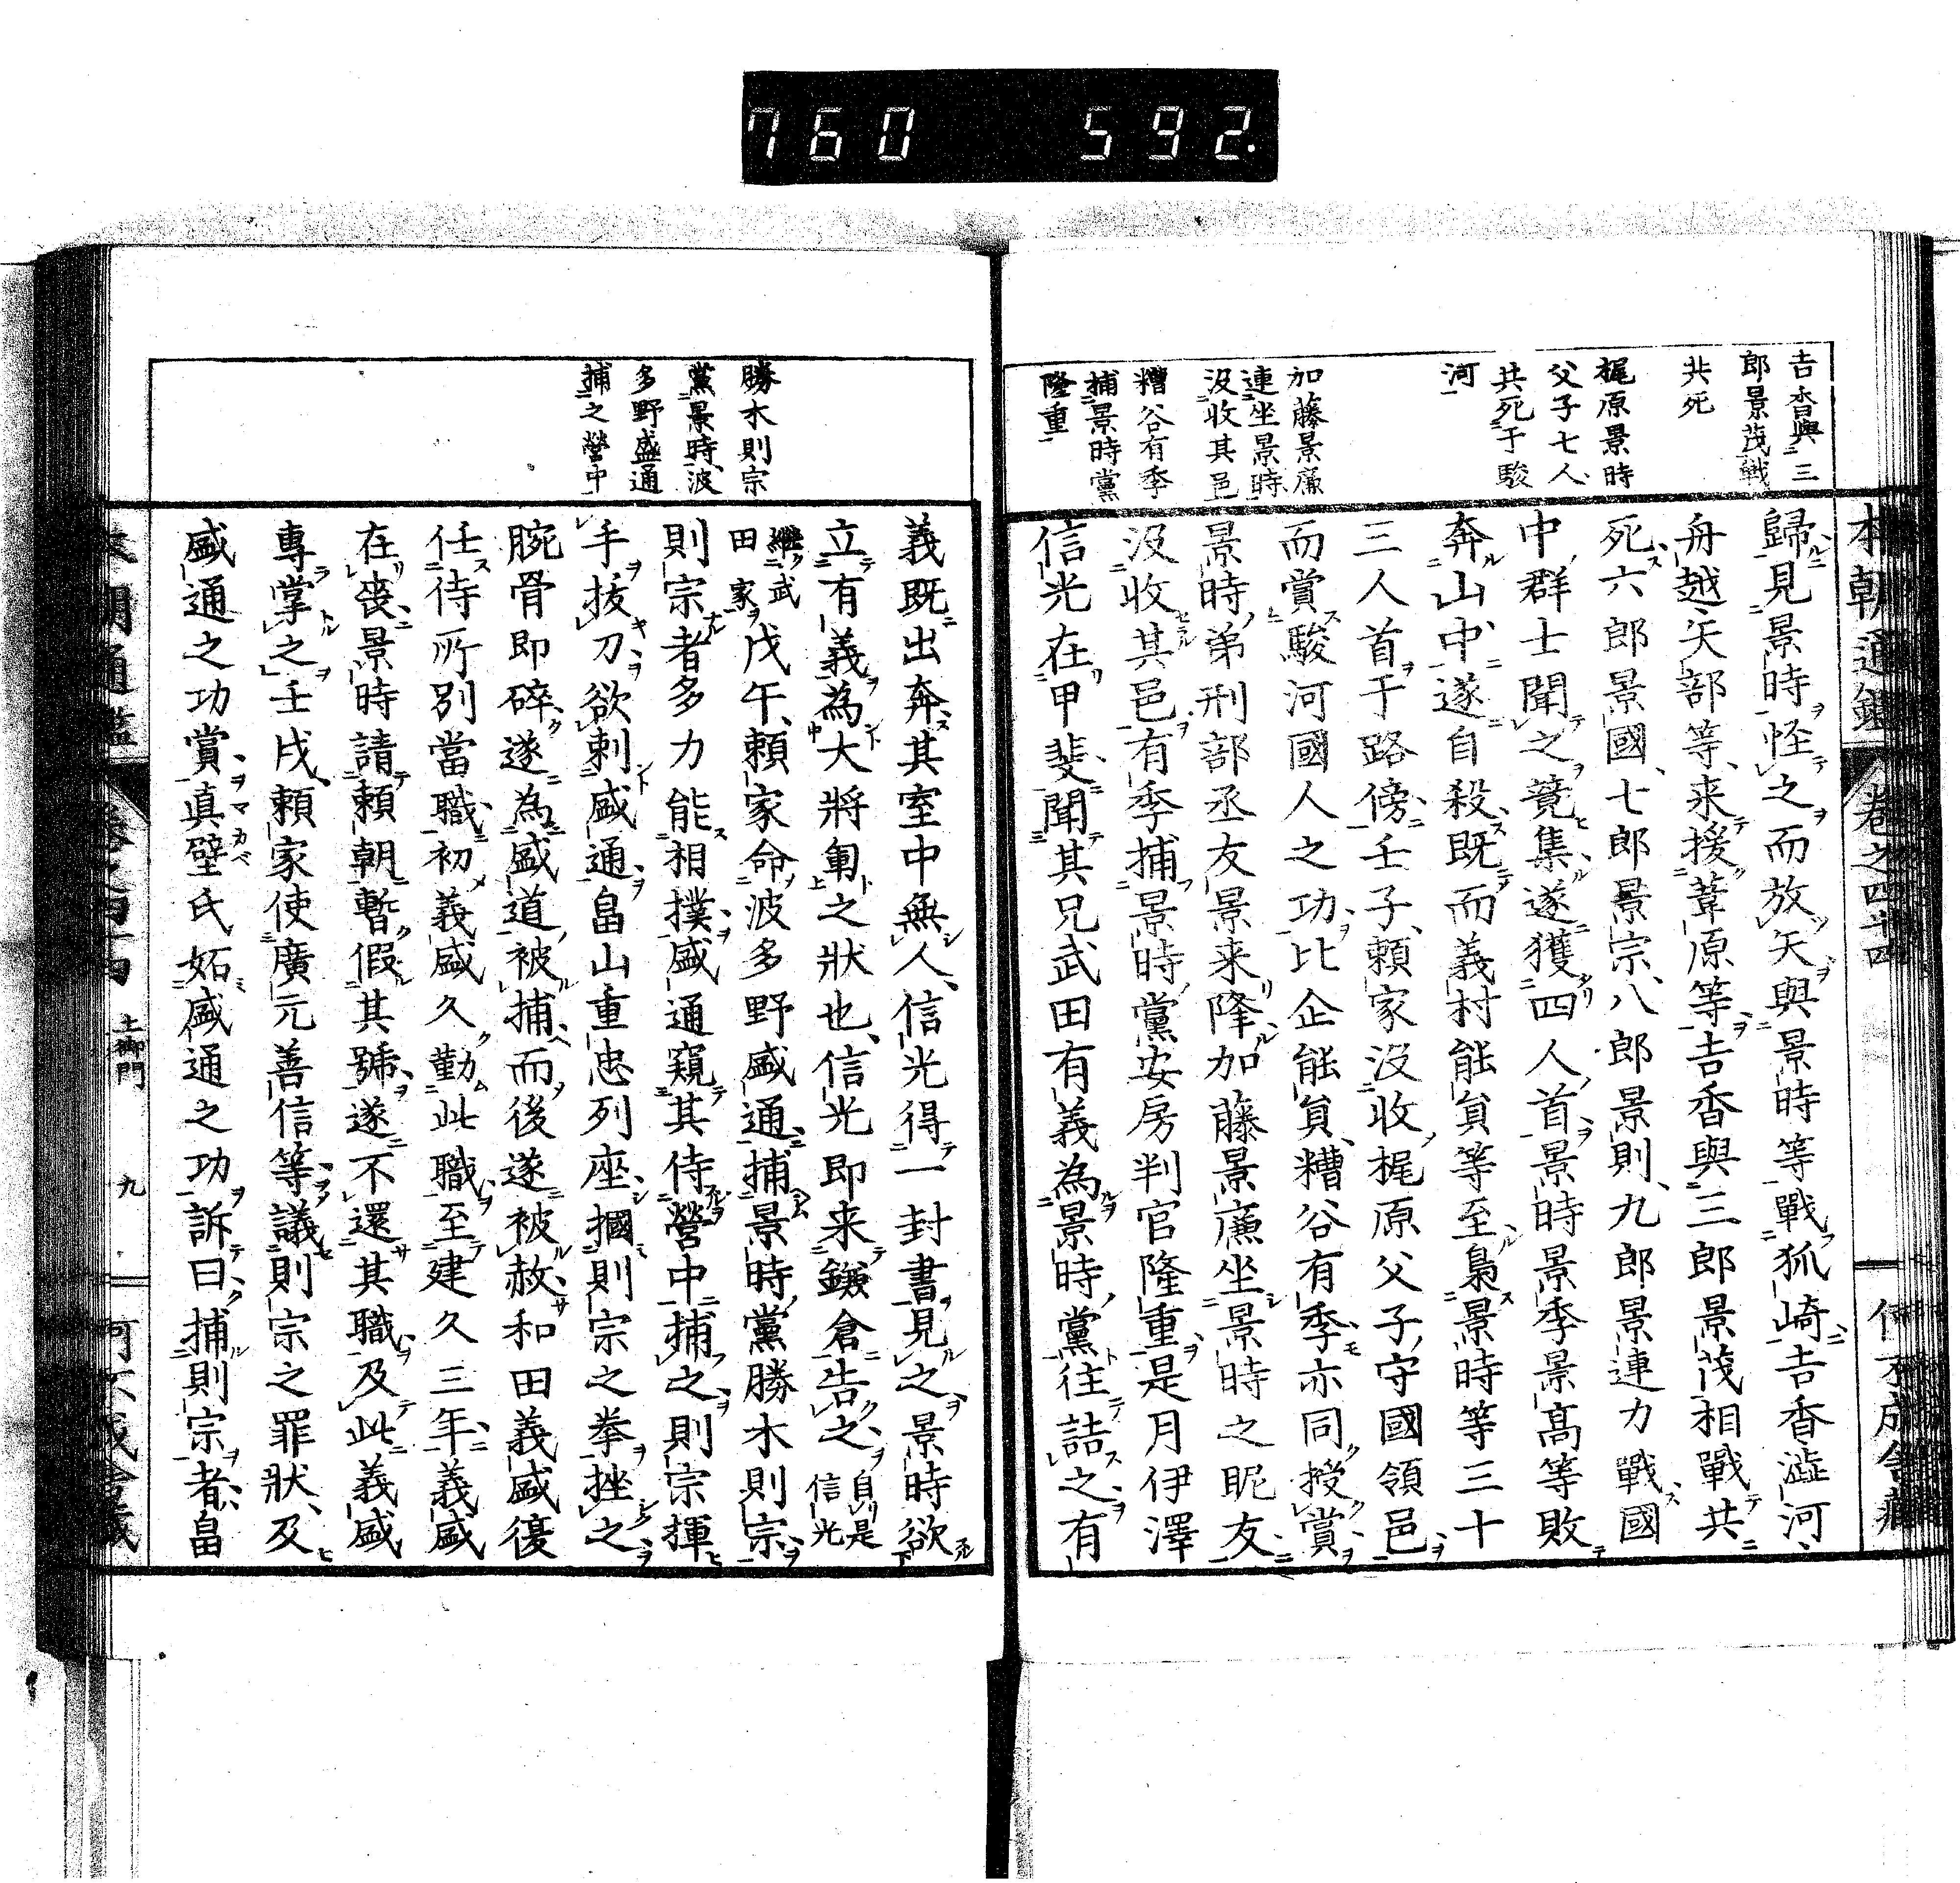 760 592.
本朝通鑑 卷之四十四
吉香與三
郎景茂戰
共死
梶原景時
父子七人
共死于駿
河
加藤景廉
連坐景時
沒收其邑
糟谷有季
捕景時黨
隆重
歸見景時怪之而放矢與景時等戰狐崎吉香澁河
舟越矢部等來援葦原等吉香與三郎景茂相戰共
死六郎景國七郎景宗八郎景則九郎景連力戰國
中群士聞之競集遂獲四人首景時景季景高等敗
奔山中遂自殺既而義村能員等至梟景時等三十
三人首于路傍壬子賴家沒收梶原父子守國領邑
而賞駿河國人之功比企能員糟谷有季亦同授賞
景時弟刑部丞友景來降加藤景廉坐景時之昵友
沒收其邑有季捕景時黨安房判官隆重是月伊澤
信光在甲斐聞其兄武田有義為景時黨往詰之有
勝木則宗
黨景時波
多野盛通
捕之營中
義既出奔其室中無人信光得一封書見之景時欲
立有義為大將軍之狀也信光即來鎌倉告之自是信光
繼武田家戊午賴家命波多野盛通捕景時黨勝木則宗
則宗者多力能相撲盛通窺其侍營中捕之則宗揮
手拔刀欲刺盛通畠山重忠列座摑則宗之拳挫之
腕骨即碎遂為盛道被捕而後遂被赦和田義盛復
任侍所別當職初義盛久勤此職至建久三年義盛
在喪景時請賴朝暫假其號遂不還其職及此義盛
專掌之壬戌賴家使廣元善信等議則宗之罪狀及
盛通之功賞真壁氏妬盛通之功訴曰捕則宗者畠
土御門 九